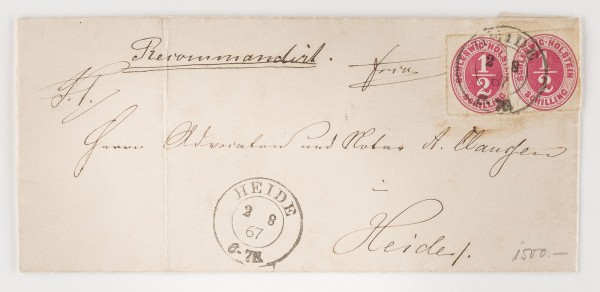 Recommandirt.
frei
SCHLESWIG-HOLSTEIN
1/2
SCHILLING
SCHLESWIG-HOLSTEIN
1/2
SCHILLING
Herrn Advocaten und Notar A. Claussen
in
Heide
HEIDE
2 8
67
6-7N
1500.—